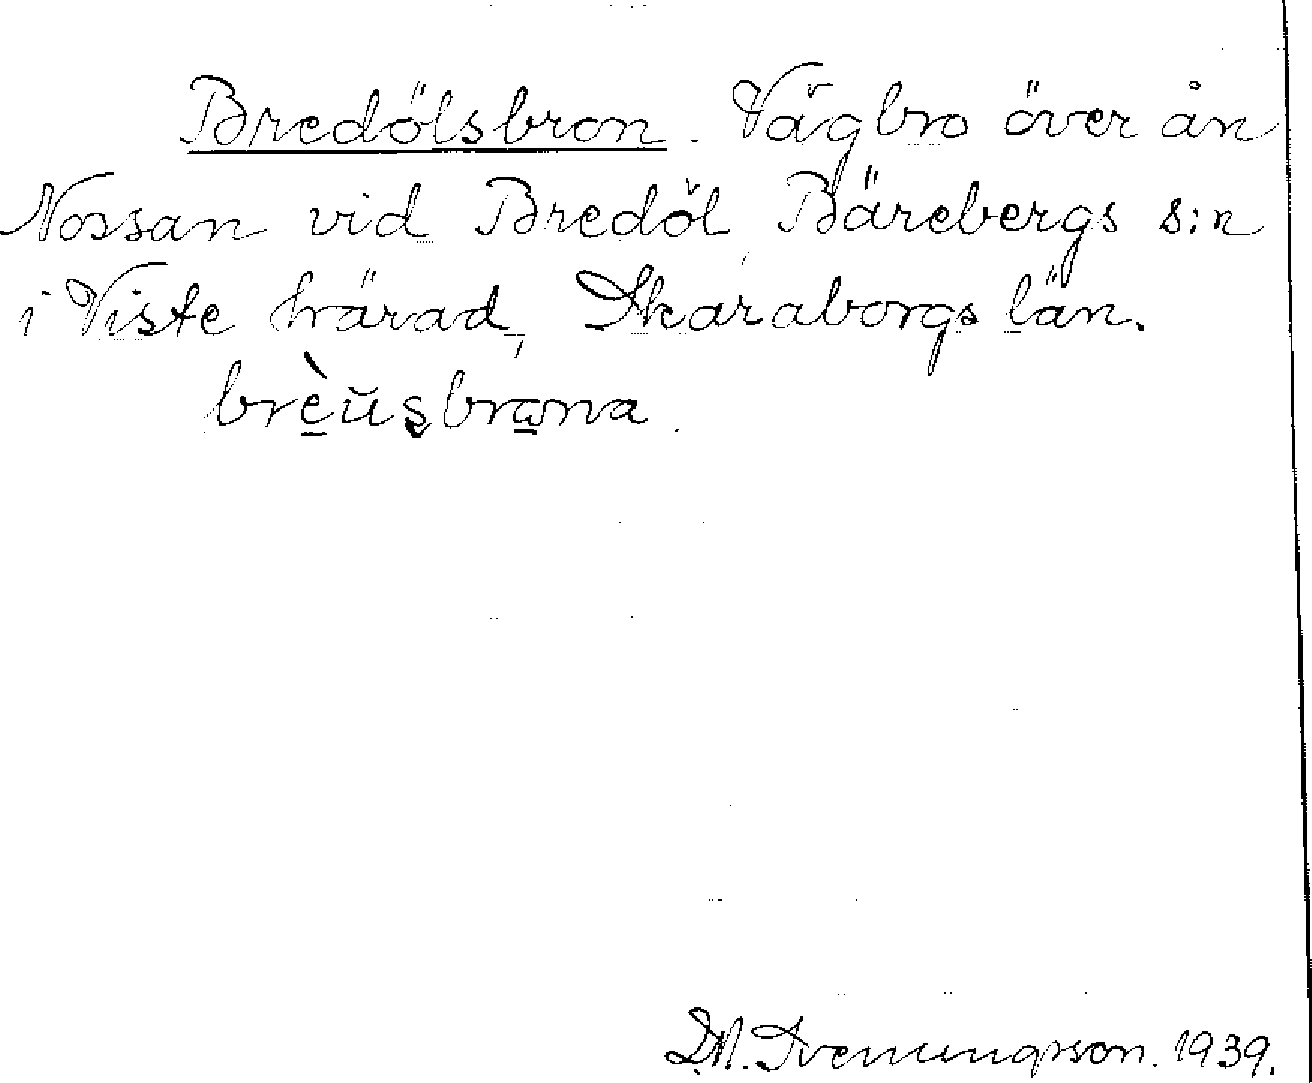 Bredölsbron. Vägbro över ån
Nossan vid Bredöl Bärebergs s:n
i Viste härad, Skaraborgs län.
brèŭsbrona.
D.N. Svenungsson. 1939.